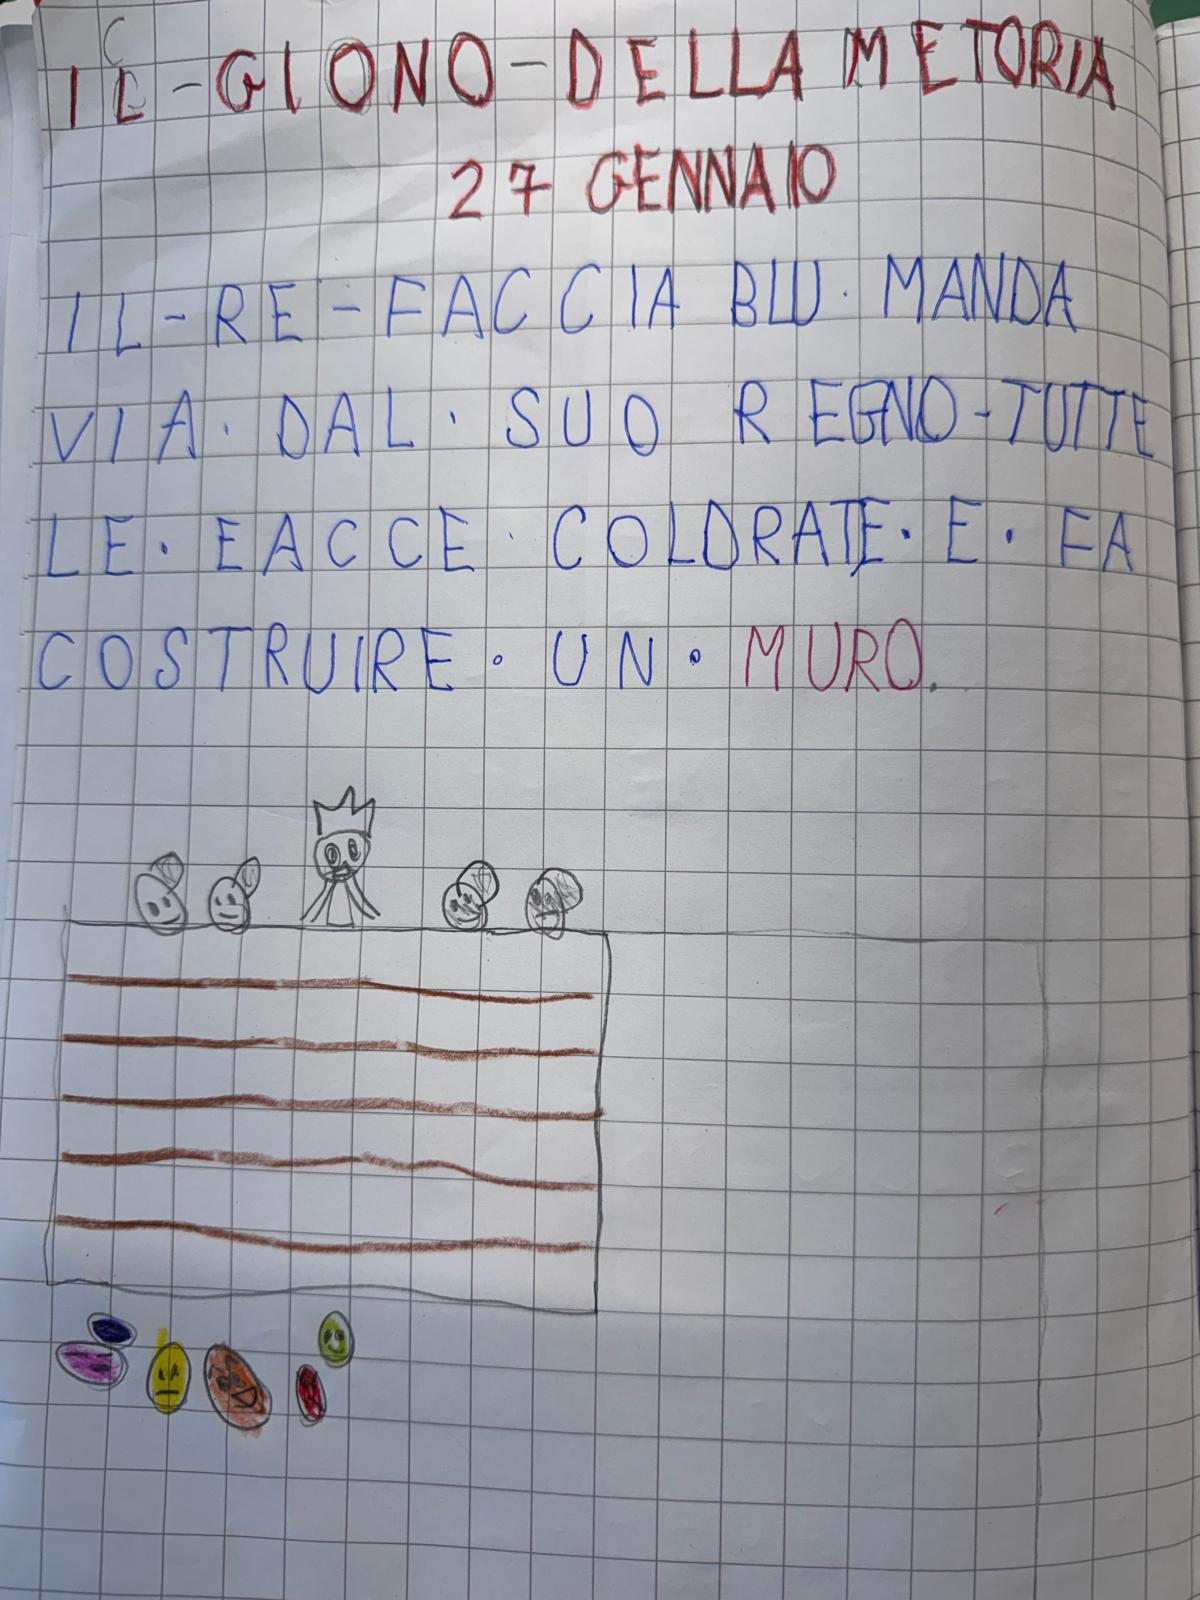 IL-GIONO-DELLA METORIA
27 GENNAIO
IL-RE-FACCIA BLU· MANDA
VIA· DAL· SUO REGNO-TUTTE
LE· EACCE· COLORATE· E· FA
COSTRUIRE· UN· MURO.